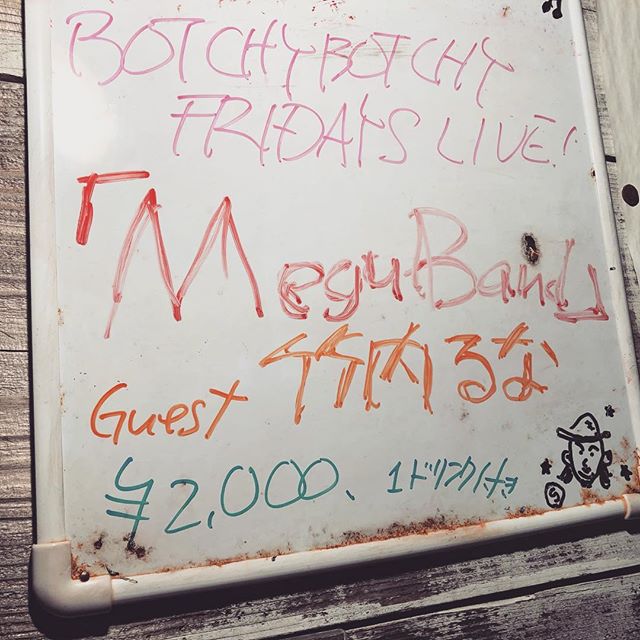 BOTCHYBOTCHY
FRIDAYS LIVE!
「MeguBand」
Guest 竹内るな
¥2,000、1ドリンク付き